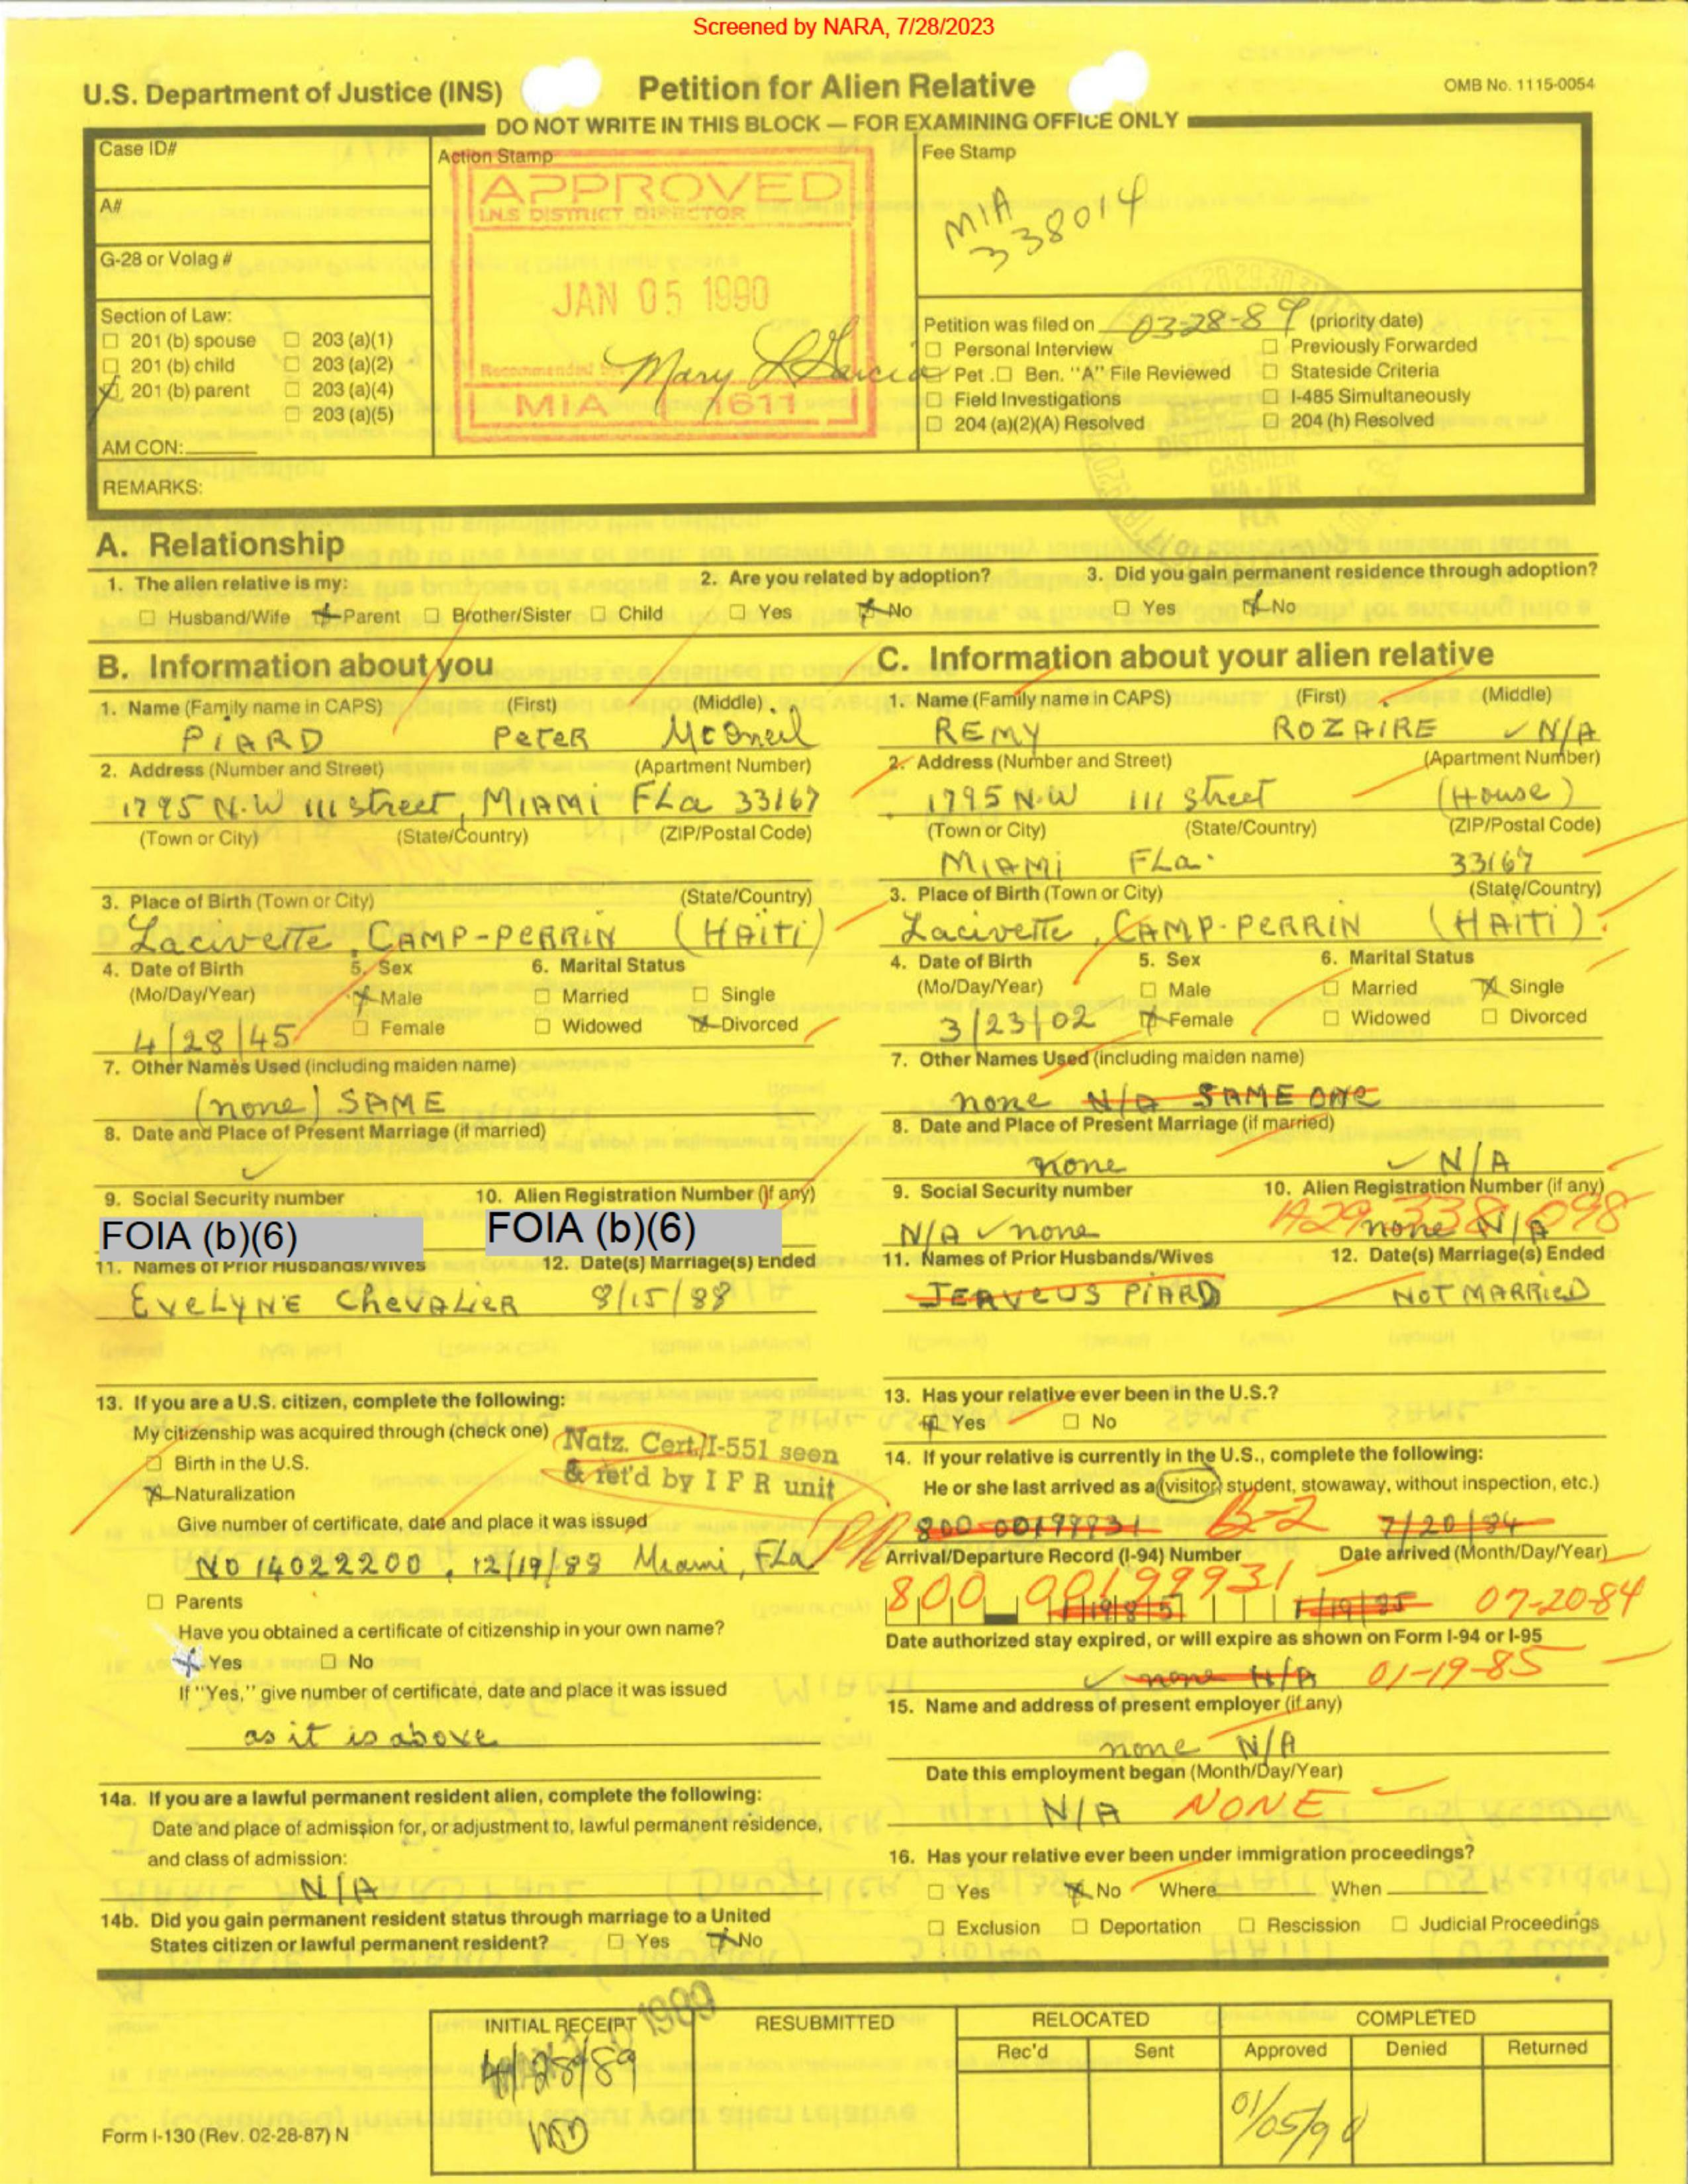 Screened by NARA, 7/28/2023
U.S. Department of Justice (INS) Petition for Alien Relative OMB No. 1115-0054
DO NOT WRITE IN THIS BLOCK — FOR EXAMINING OFFICE ONLY
Case ID# Action Stamp Fee Stamp
APPROVED
I.N.S DISTRICT DIRECTOR
MIA
338014
A#
G-28 or Volag #
JAN 05 1990
Section of Law:
☐ 201 (b) spouse ☐ 203 (a)(1)
☐ 201 (b) child ☐ 203 (a)(2)
☒ 201 (b) parent ☐ 203 (a)(4)
☐ 203 (a)(5)
AM CON:
Recommended by
Mary L Garcia
MIA 1611
Petition was filed on 03-28-89 (priority date)
☐ Personal Interview ☐ Previously Forwarded
☐ Pet. ☐ Ben. "A" File Reviewed ☐ Stateside Criteria
☐ Field Investigations ☐ I-485 Simultaneously
☐ 204 (a)(2)(A) Resolved ☐ 204 (h) Resolved
DISTRICT
CASHIER
MIA-IFR
FLA
REMARKS:
A. Relationship
1. The alien relative is my: 2. Are you related by adoption? 3. Did you gain permanent residence through adoption?
☐ Husband/Wife ☒ Parent ☐ Brother/Sister ☐ Child ☐ Yes ☒ No ☐ Yes ☒ No
B. Information about you
1. Name (Family name in CAPS) (First) (Middle)
PIARD PETER McOneil
2. Address (Number and Street) (Apartment Number)
1795 N.W 111 street, MIAMI FLa 33167
(Town or City) (State/Country) (ZIP/Postal Code)
3. Place of Birth (Town or City) (State/Country)
Lacivette, CAMP-PERRIN (HAÏTI)
4. Date of Birth 5. Sex 6. Marital Status
(Mo/Day/Year) ☒ Male ☐ Married ☐ Single
4/28/45 ☐ Female ☐ Widowed ☒ Divorced
7. Other Names Used (including maiden name)
(none) SAME
8. Date and Place of Present Marriage (if married)
9. Social Security number 10. Alien Registration Number (if any)
FOIA (b)(6) FOIA (b)(6)
11. Names of Prior Husbands/Wives 12. Date(s) Marriage(s) Ended
EVELYNE CHEVALIER 8/15/88
13. If you are a U.S. citizen, complete the following:
My citizenship was acquired through (check one)
Natz. Cert/I-551 seen
& ret'd by I F R unit
☐ Birth in the U.S.
☒ Naturalization
Give number of certificate, date and place it was issued
NO 14022200, 12/19/88 Miami, FLa.
☐ Parents
Have you obtained a certificate of citizenship in your own name?
☒ Yes ☐ No
If "Yes," give number of certificate, date and place it was issued
as it is above
14a. If you are a lawful permanent resident alien, complete the following:
Date and place of admission for, or adjustment to, lawful permanent residence,
and class of admission:
N/A
14b. Did you gain permanent resident status through marriage to a United
States citizen or lawful permanent resident? ☐ Yes ☒ No
C. Information about your alien relative
1. Name (Family name in CAPS) (First) (Middle)
REMY ROZAIRE ✓ N/A
2. Address (Number and Street) (Apartment Number)
1795 N.W 111 street (House)
(Town or City) (State/Country) (ZIP/Postal Code)
MIAMI FLa. 33167
3. Place of Birth (Town or City) (State/Country)
Lacivette, CAMP-PERRIN (HAÏTI).
4. Date of Birth 5. Sex 6. Marital Status
(Mo/Day/Year) ☐ Male ☐ Married ☒ Single
3/23/02 ☒ Female ☐ Widowed ☐ Divorced
7. Other Names Used (including maiden name)
none N/A SAME ONE
8. Date and Place of Present Marriage (if married)
none ✓ N/A
9. Social Security number 10. Alien Registration Number (if any)
N/A ✓ none none N/A A29 338 098
11. Names of Prior Husbands/Wives 12. Date(s) Marriage(s) Ended
JERVEUS PIARD NOT MARRIED
13. Has your relative ever been in the U.S.?
☒ Yes ☐ No
14. If your relative is currently in the U.S., complete the following:
He or she last arrived as a (visitor, student, stowaway, without inspection, etc.)
800 00199931 B-2 7/20/84
Arrival/Departure Record (I-94) Number Date arrived (Month/Day/Year)
800 00199931 1/19/85 07-20-84
Date authorized stay expired, or will expire as shown on Form I-94 or I-95
✓ none N/A 01-19-85
15. Name and address of present employer (if any)
none N/A
Date this employment began (Month/Day/Year)
N/A NONE
16. Has your relative ever been under immigration proceedings?
☐ Yes ☒ No Where When
☐ Exclusion ☐ Deportation ☐ Rescission ☐ Judicial Proceedings
INITIAL RECEIPT RESUBMITTED RELOCATED COMPLETED
Rec'd Sent Approved Denied Returned
1989
28/89
01/05/90
Form I-130 (Rev. 02-28-87) N